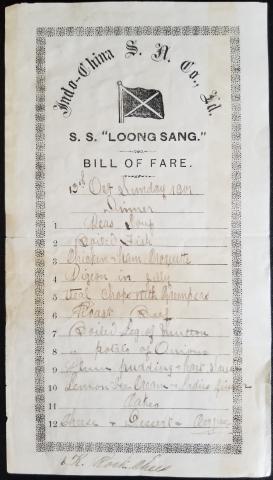 Indo-China S. N. Co., Ld.
S. S. "LOONG SANG."
BILL OF FARE.
13th Oct Sunday 1901
Dinner
1 Peas Soup
2 Boiled Fish
3 Chicken & Ham Croquette
4 Pigeon in Jelly
5 Veal Chops with
6 Roast Beef
7 Boiled Leg of Mutton
8 " potato & Onions
9 Plum pudding
10 Lemon Ice Cream & Ladies fin
11 Cakes
12 Cheese & Dessert &